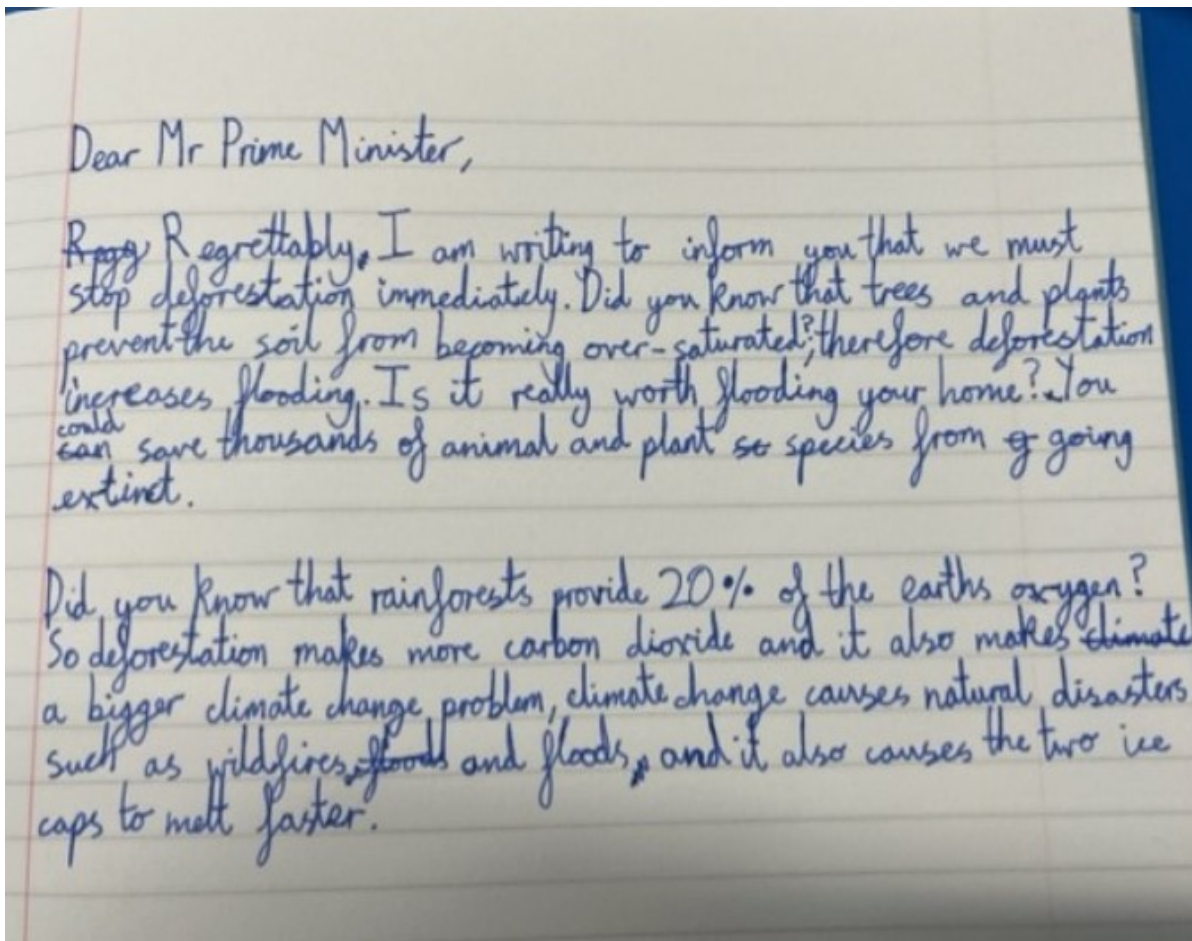 Dear Mr Prime Minister,
Regrettably, I am writing to inform you that we must
stop deforestation immediately. Did you know that trees and plants
prevent the soil from becoming over-saturated?; therefore deforestation
increases flooding. Is it really worth flooding your home? You
could
can save thousands of animal and plant species from going
extinct.
Did you know that rainforests provide 20% of the earths oxygen?
So deforestation makes more carbon dioxide and it also makes climate
a bigger climate change problem, climate change causes natural disasters
such as wildfires, floods and floods, and it also causes the two ice
caps to melt faster.